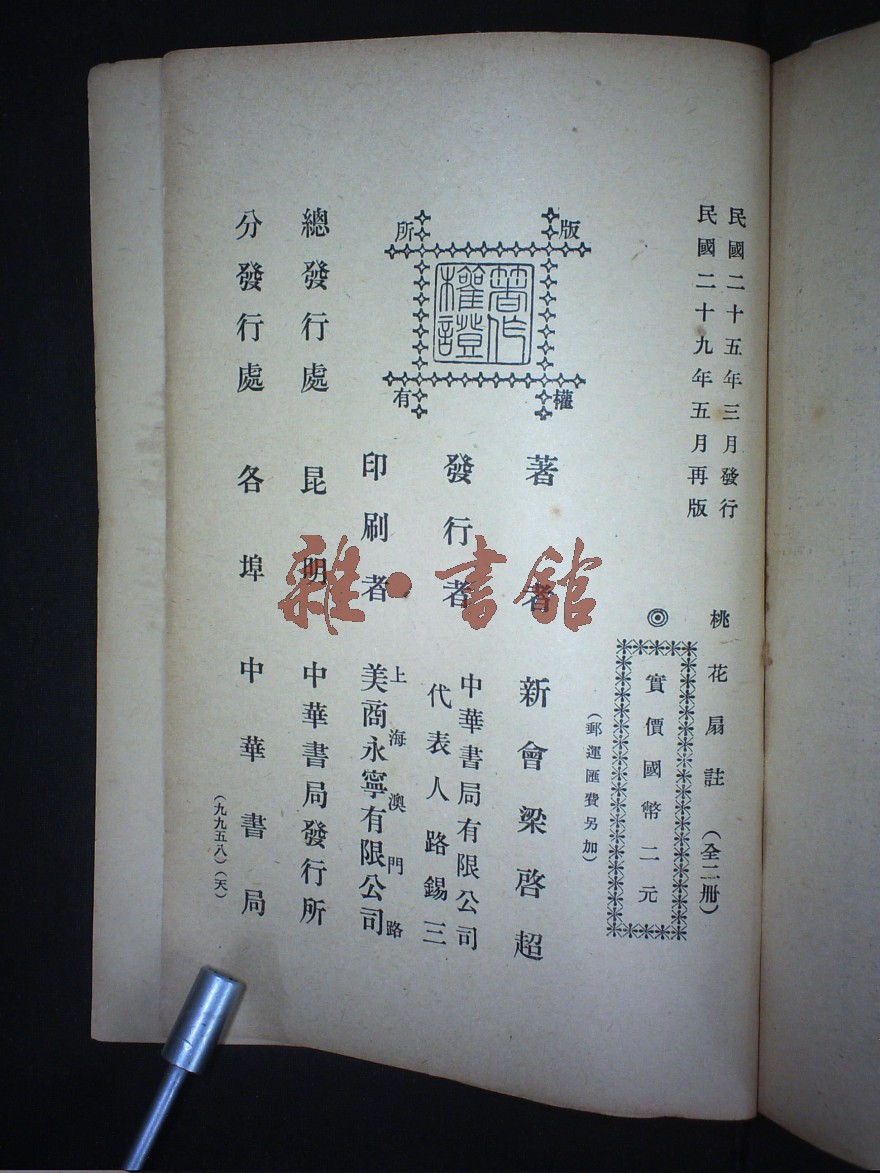 民國二十五年三月發行
民國二十九年五月再版
桃花扇註（全二冊）
◎
實價國幣二元
（郵運匯費另加）
版權所有
著作權證
著者 新會梁啓超
發行者 中華書局有限公司
代表人路錫三
印刷者 上海澳門路
美商永寧有限公司
總發行處 昆明 中華書局發行所
分發行處 各埠 中華書局
（九九五八）（天）
雜·書館